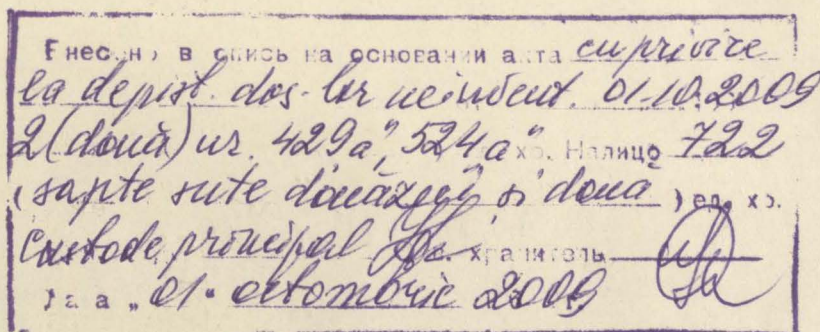 Внесено в опись на основании акта cu privire
la depist. dos-lor neinvent. 01.10.2009
2 (două) nr. 429a", 524a" ед. хр. Налицо 722
(șapte sute douăzeci și doua) ед. хр.
Custode principal хранитель
Дата "01" octombrie 2009